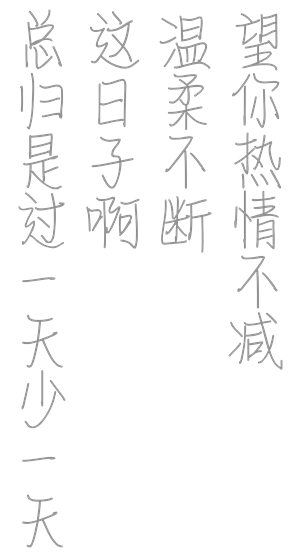 望你热情不减
温柔不断
这日子啊
总归是过一天少一天